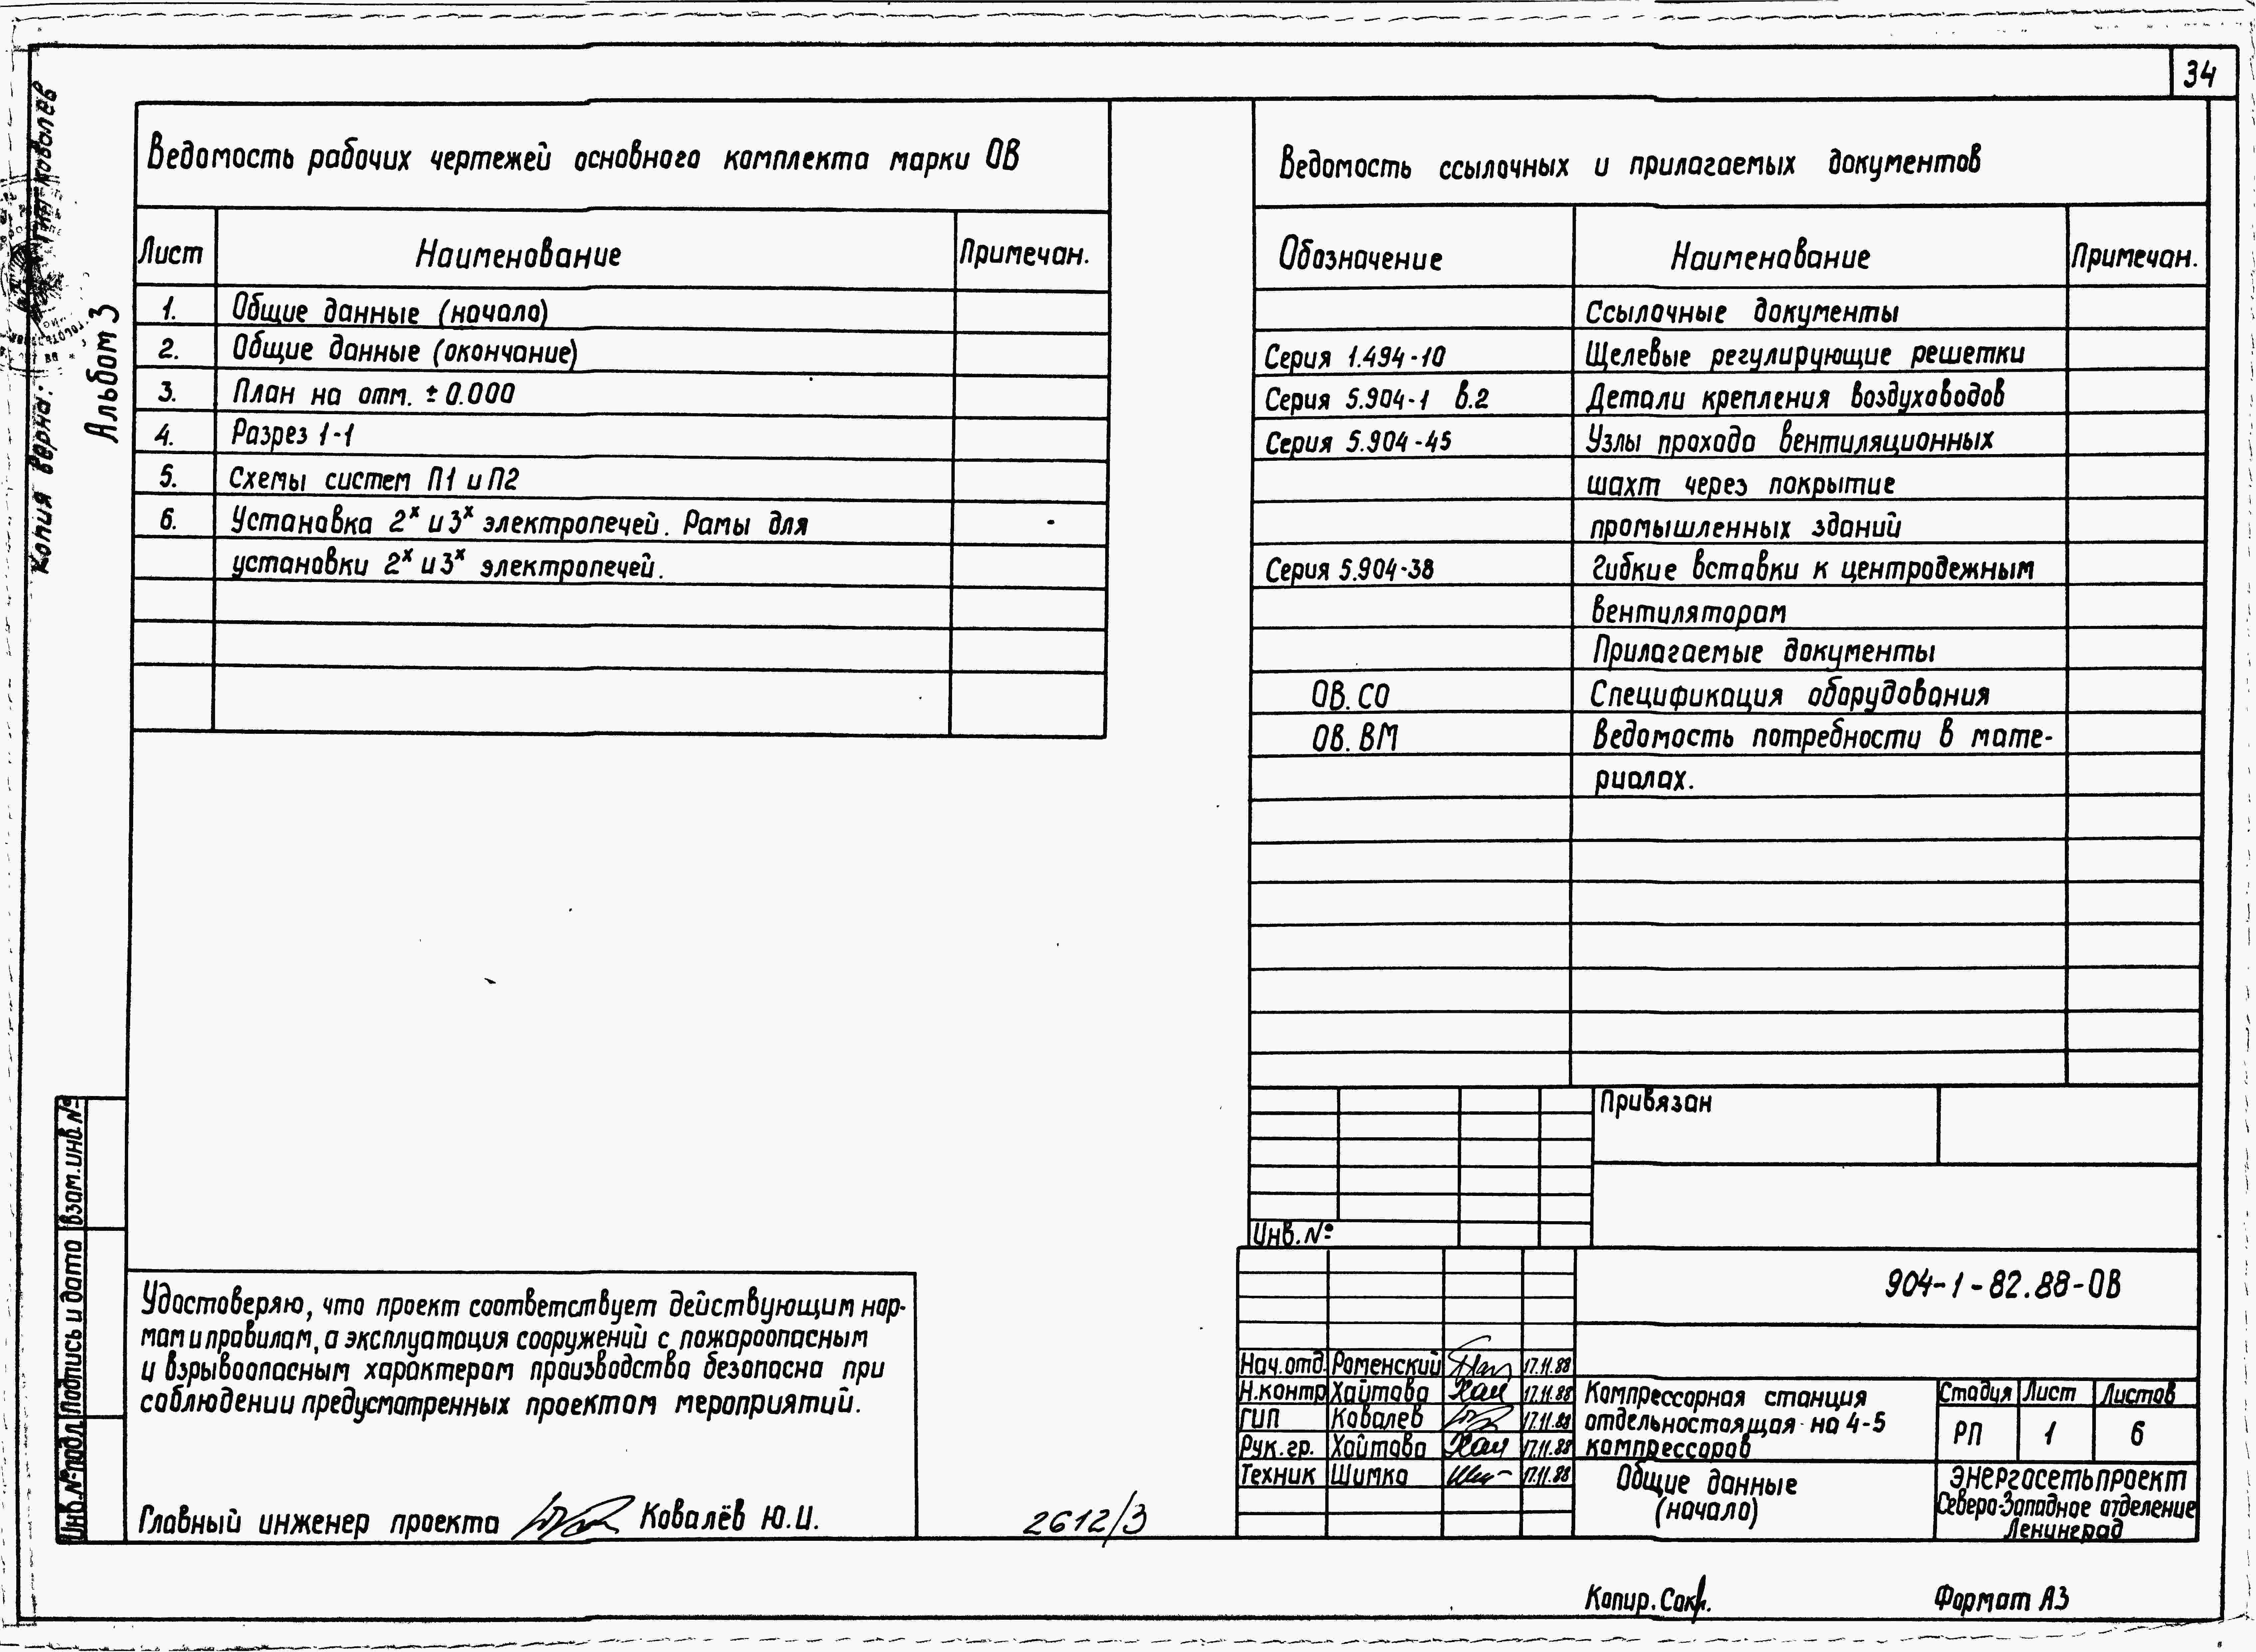 34
Копия верна: ГИП Ковалев
Альбом 3
Ведомость рабочих чертежей основного комплекта марки ОВ
Лист Наименование Примечан.
1. Общие данные (начало)
2. Общие данные (окончание)
3. План на отм. ±0.000
4. Разрез 1-1
5. Схемы систем П1 и П2
6. Установка 2ˣ и 3ˣ электропечей. Рамы для
установки 2ˣ и 3ˣ электропечей.
Ведомость ссылочных и прилагаемых документов
Обозначение Наименование Примечан.
Ссылочные документы
Серия 1.494-10 Щелевые регулирующие решетки
Серия 5.904-1 в.2 Детали крепления воздуховодов
Серия 5.904-45 Узлы прохода вентиляционных
шахт через покрытие
промышленных зданий
Серия 5.904-38 Гибкие вставки к центродежным
вентиляторам
Прилагаемые документы
ОВ.СО Спецификация оборудования
ОВ.ВМ Ведомость потребности в мате-
риалах.
Привязан
Инв.№
Взам.инв.№
Подпись и дата
Инв.№подл.
Удостоверяю, что проект соответствует действующим нор-
мам и правилам, а эксплуатация сооружений с пожароопасным
и взрывоопасным характером производства безопасна при
соблюдении предусмотренных проектом мероприятий.
Главный инженер проекта Ковалёв Ю.И.
2612/3
904-1-82.88-ОВ
Нач.отд. Роменский 17.11.88
Н.контр Хаитова 17.11.88
ГИП Ковалев 17.11.88
Рук.гр. Хаитова 17.11.88
Техник Шимко 17.11.88
Компрессорная станция
отдельностоящая на 4-5
компрессоров
Стадия Лист Листов
РП 1 6
Общие данные
(начало)
ЭНЕРГОСЕТЬПРОЕКТ
Северо-Западное отделение
Ленинград
Копир. Формат А3